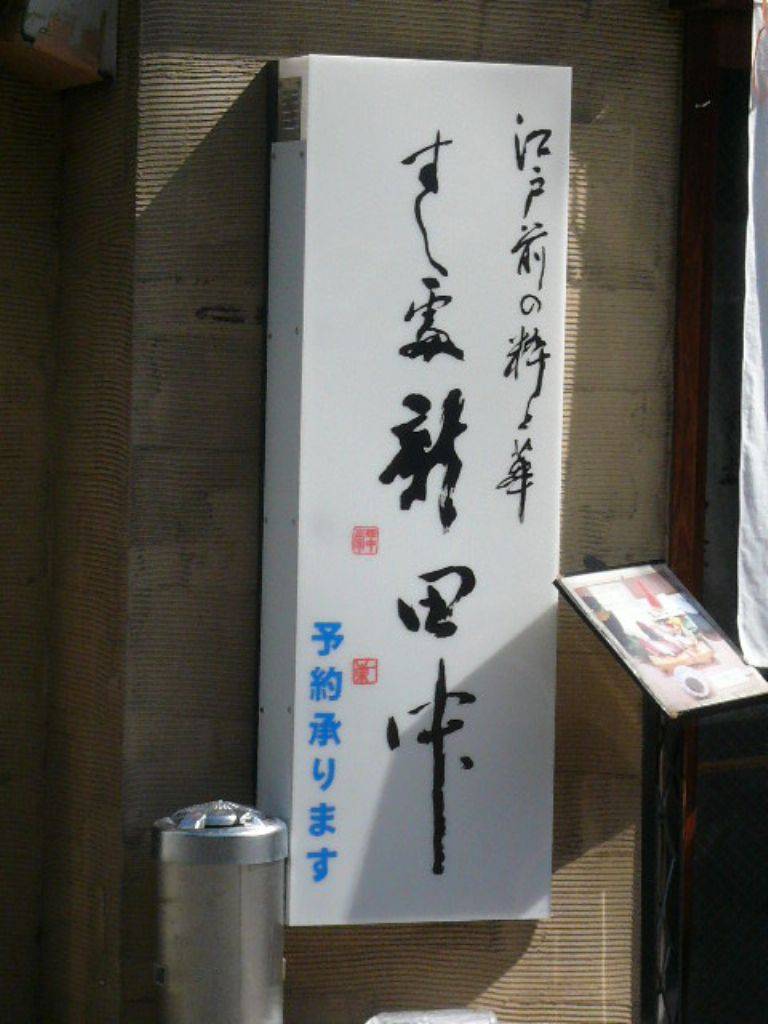 江戸前の粋と華
すし處 新田中
予約承ります